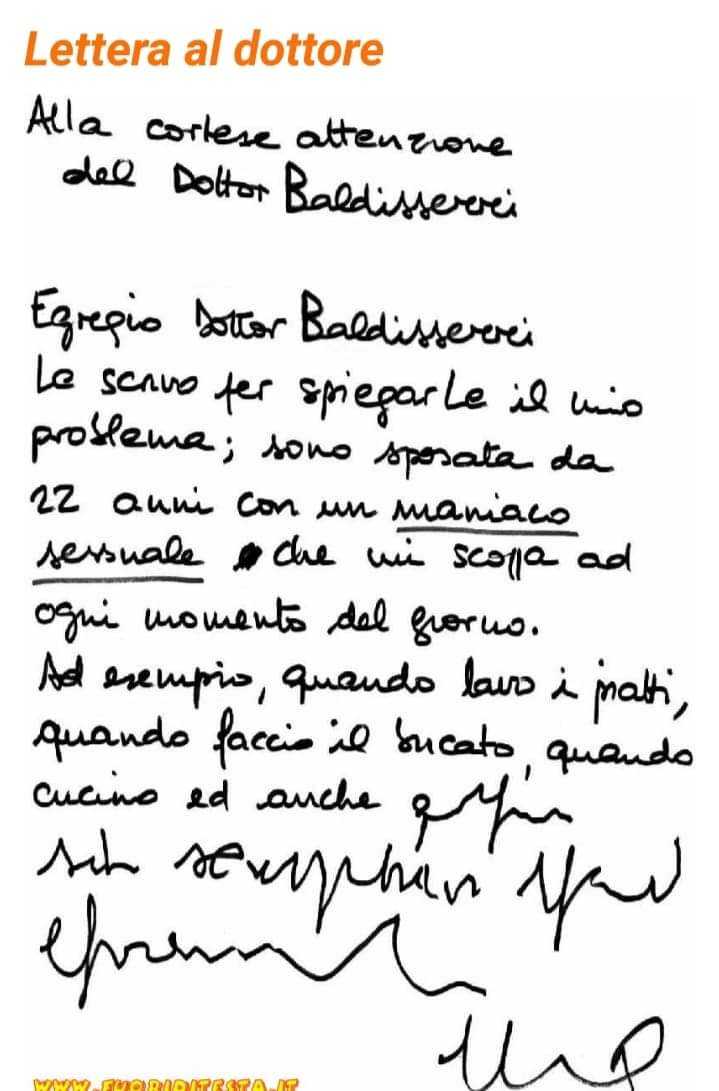 Lettera al dottore
Alla cortese attenzione
del Dottor Baldisserrei
Egregio Dottor Baldisserrei
Le scrivo per spiegarLe il mio
problema; sono sposata da
22 anni con un maniaco
sessuale che mi scopa ad
ogni momento del giorno.
Ad esempio, quando lavo i piatti,
quando faccio il bucato, quando
cucino ed anche
WWW.FUORIDITESTA.IT